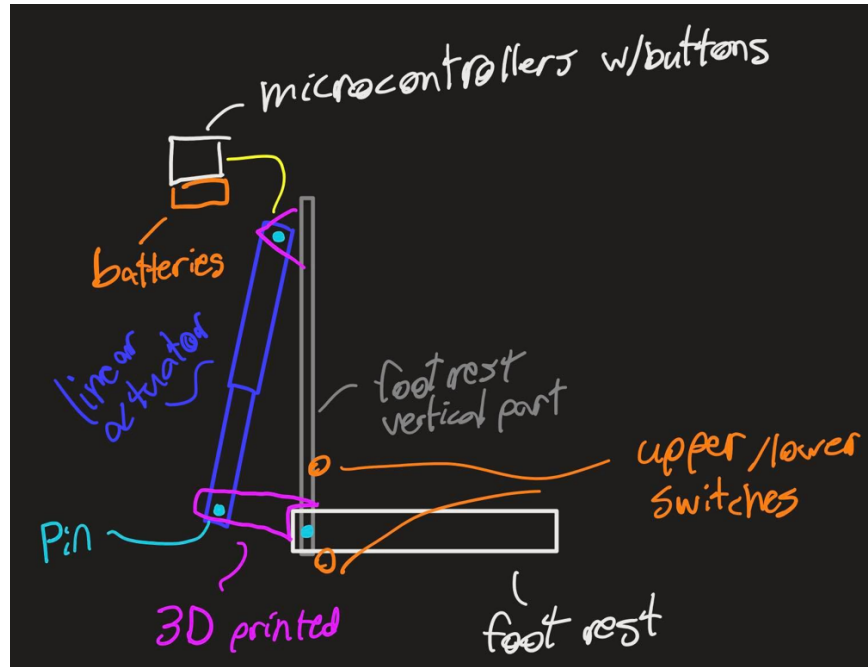 microcontrollers w/buttons
batteries
linear
actuator
foot rest
vertical part
upper/lower
switches
Pin
3D printed
foot rest